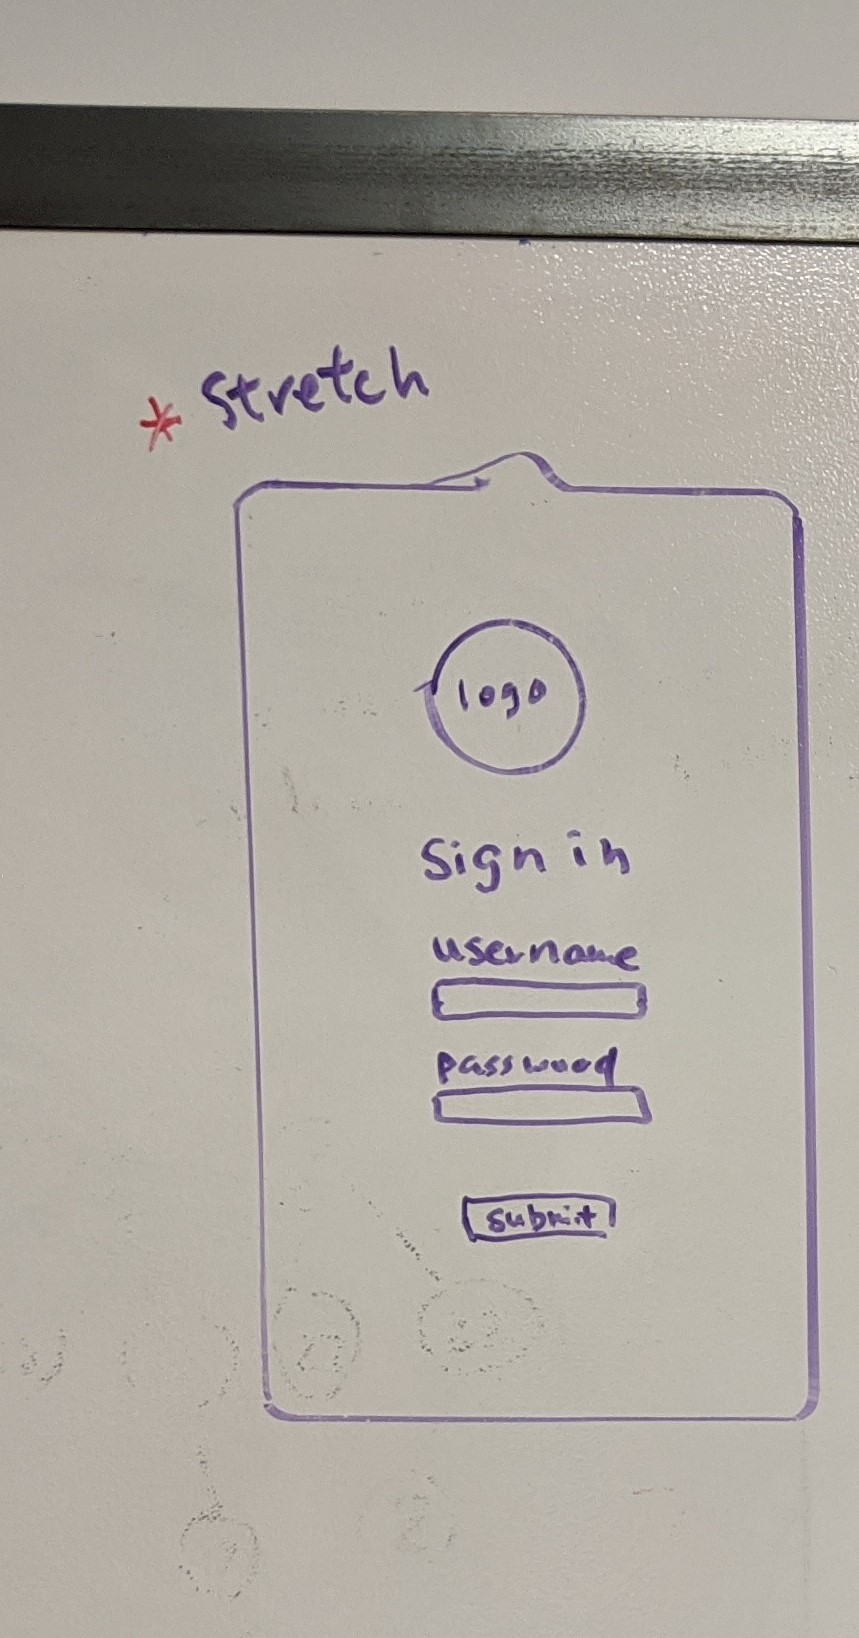 * Stretch
logo
Sign in
username
password
submit